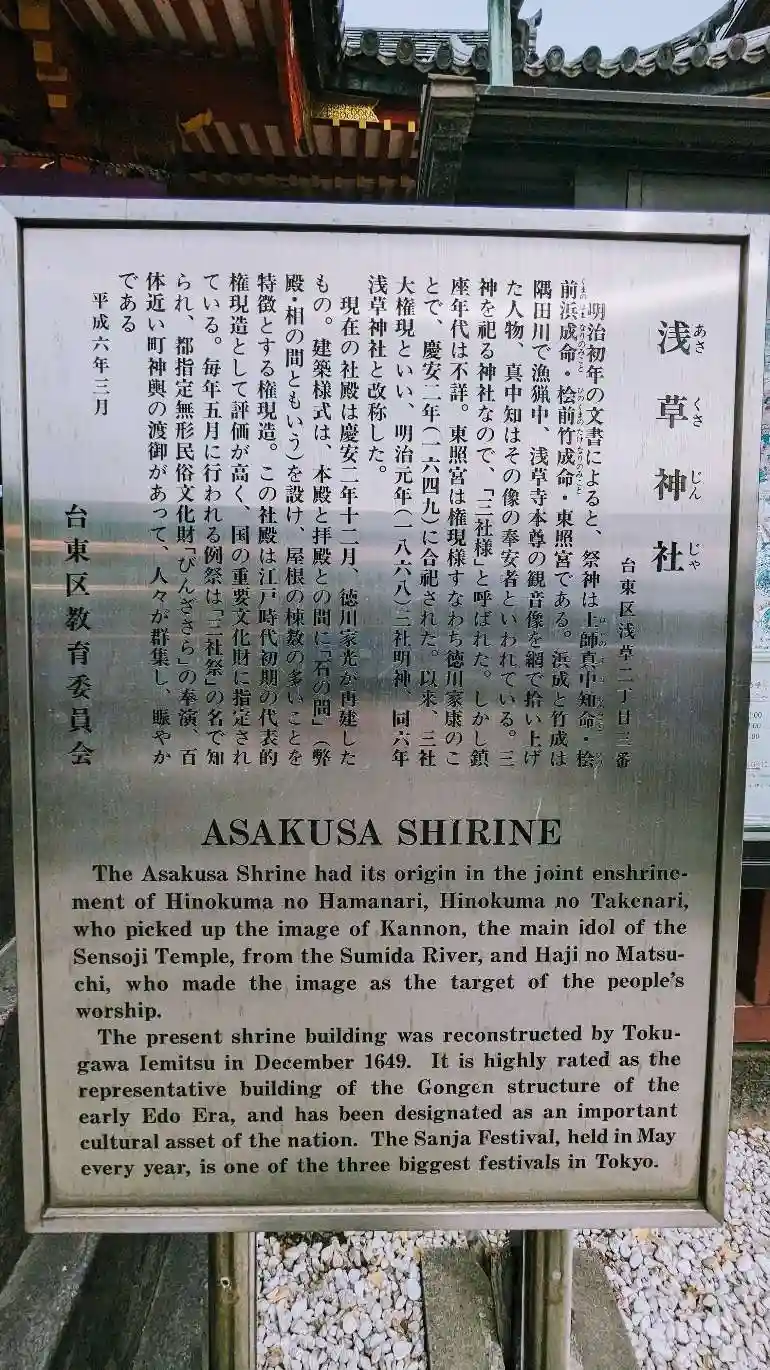 浅草神社
あさくさじんじゃ
台東区浅草二丁目三番
明治初年の文書によると、祭神は土師真中知命・桧
前浜成命・桧前竹成命・東照宮である。浜成と竹成は
隅田川で漁猟中、浅草寺本尊の観音像を網で拾い上げ
た人物、真中知はその像の奉安者といわれている。三
神を祀る神社なので、「三社様」と呼ばれた。しかし鎮
座年代は不詳。東照宮は権現様すなわち徳川家康のこ
とで、慶安二年(一六四九)に合祀された。以来、三社
大権現といい、明治元年(一八六八)三社明神、同六年
浅草神社と改称した。
現在の社殿は慶安二年十二月、徳川家光が再建した
もの。建築様式は、本殿と拝殿との間に「石の間」(弊
殿・相の間ともいう)を設け、屋根の棟数の多いことを
特徴とする権現造。この社殿は江戸時代初期の代表的
権現造として評価が高く、国の重要文化財に指定され
ている。毎年五月に行われる例祭は「三社祭」の名で知
られ、都指定無形民俗文化財「びんざさら」の奉演、百
体近い町神輿の渡御があって、人々が群集し、賑やか
である
平成六年三月
台東区教育委員会
ASAKUSA SHIRINE
The Asakusa Shrine had its origin in the joint enshrine-
ment of Hinokuma no Hamanari, Hinokuma no Takenari,
who picked up the image of Kannon, the main idol of the
Sensoji Temple, from the Sumida River, and Haji no Matsu-
chi, who made the image as the target of the people's
worship.
The present shrine building was reconstructed by Toku-
gawa Iemitsu in December 1649. It is highly rated as the
representative building of the Gongen structure of the
early Edo Era, and has been designated as an important
cultural asset of the nation. The Sanja Festival, held in May
every year, is one of the three biggest festivals in Tokyo.